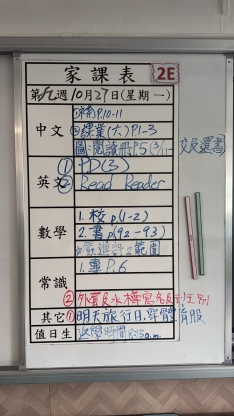 家課表 2E
第九週10月27日(星期一)
中文
P.10-11
作業(大)P.1-3
圖:閱讀冊P.5(3/11-交反還書
英文
① PD(3)
② Read Reader
數學
1. 校 p(1-2)
2. 書 p(92-93)
範圍
常識
1. 專 P.6
② 外套及水樽寫名及班 2E
其它
① 明天旅行日,穿體育服
值日生
返學時間 8:15a.m.